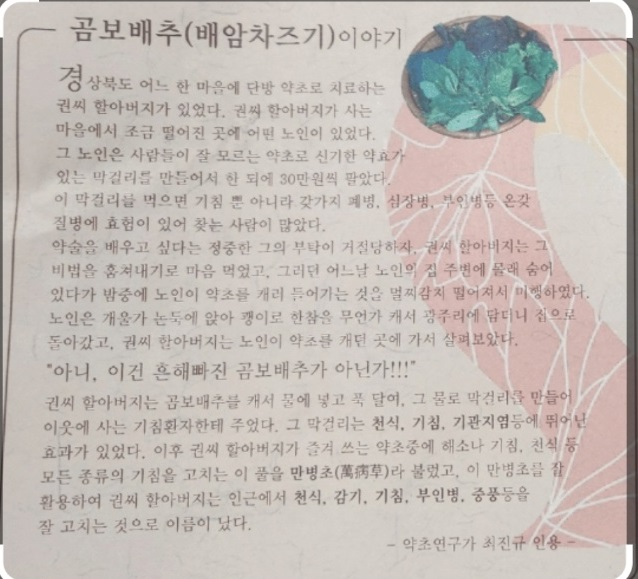 곰보배추(배암차즈기)이야기
경상북도 어느 한 마을에 단방 약초로 치료하는
권씨 할아버지가 있었다. 권씨 할아버지가 사는
마을에서 조금 떨어진 곳에 어떤 노인이 있었다.
그 노인은 사람들이 잘 모르는 약초로 신기한 약효가
있는 막걸리를 만들어서 한 되에 30만원씩 팔았다.
이 막걸리를 먹으면 기침 뿐 아니라 갖가지 폐병, 심장병, 부인병등 온갖
질병에 효험이 있어 찾는 사람이 많았다.
약술을 배우고 싶다는 정중한 그의 부탁이 거절당하자, 권씨 할아버지는 그
비법을 훔쳐내기로 마음 먹었고, 그러던 어느날 노인의 집 주변에 몰래 숨어
있다가 밤중에 노인이 약초를 캐러 들어가는 것을 멀찌감치 떨어져서 미행하였다.
노인은 개울가 논둑에 앉아 괭이로 한참을 무언가 캐서 광주리에 담더니 집으로
돌아갔고, 권씨 할아버지는 노인이 약초를 캐던 곳에 가서 살펴보았다.
"아니, 이건 흔해빠진 곰보배추가 아닌가!!!"
권씨 할아버지는 곰보배추를 캐서 물에 넣고 푹 달여, 그 물로 막걸리를 만들어
이웃에 사는 기침환자한테 주었다. 그 막걸리는 천식, 기침, 기관지염등에 뛰어난
효과가 있었다. 이후 권씨 할아버지가 즐겨 쓰는 약초중에 해소나 기침, 천식 등
모든 종류의 기침을 고치는 이 풀을 만병초(萬病草)라 불렀고, 이 만병초를 잘
활용하여 권씨 할아버지는 인근에서 천식, 감기, 기침, 부인병, 중풍등을
잘 고치는 것으로 이름이 났다.
- 약초연구가 최진규 인용 -